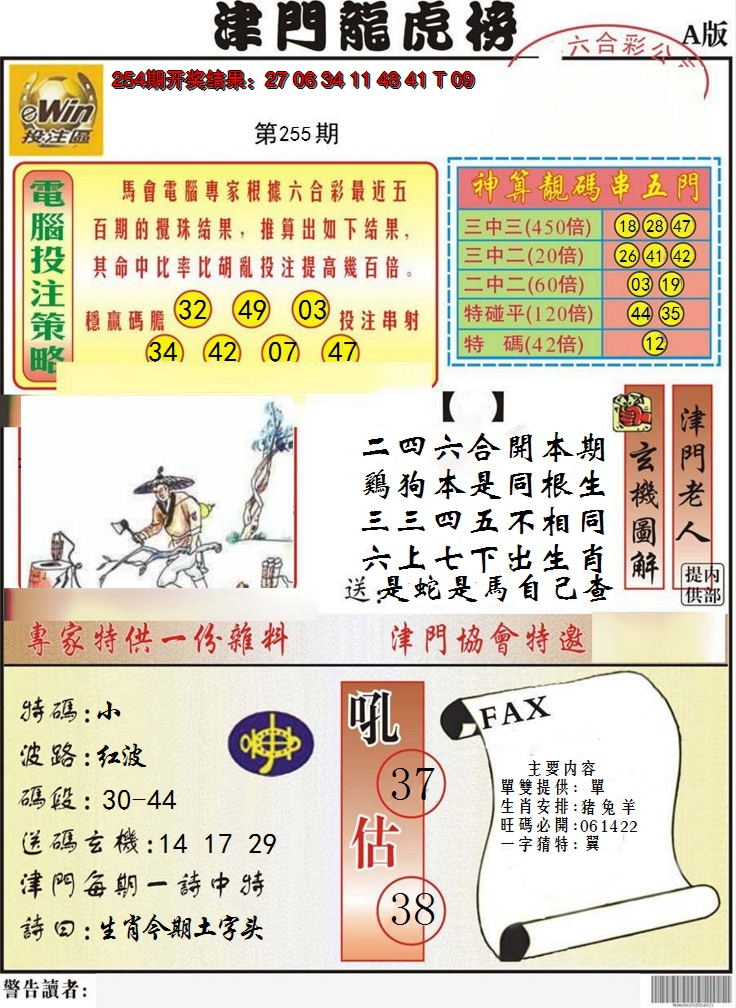 津門龍虎榜
A版
六合彩公
254期开奖结果：27 06 34 11 48 41 T 09
eWin
投注區
第255期
電腦投注策略
馬會電腦專家根據六合彩最近五
百期的攪珠结果，推算出如下结果，
其命中比率比胡亂投注提高幾百倍。
穩贏碼膽 32 49 03 投注串射
34 42 07 47
神算靚碼串五門
三中三(450倍) 18 28 47
三中二(20倍) 26 41 42
二中二(60倍) 03 19
特碰平(120倍) 44 35
特 碼(42倍) 12
【 】
二四六合開本期
鷄狗本是同根生
三三四五不相同
六上七下出生肖
送:是蛇是馬自己查
玄機圖解
津門老人
内部提供
專家特供一份雜料
津門協會特邀
特碼:小
波路:红波
碼段:30-44
送碼玄機:14 17 29
津門每期一詩中特
詩曰:生肖今期土字头
吼
37
估
38
FAX
主要内容
單雙提供: 單
生肖安排:猪兔羊
旺碼必開:061422
一字猜特:翼
警告讀者: